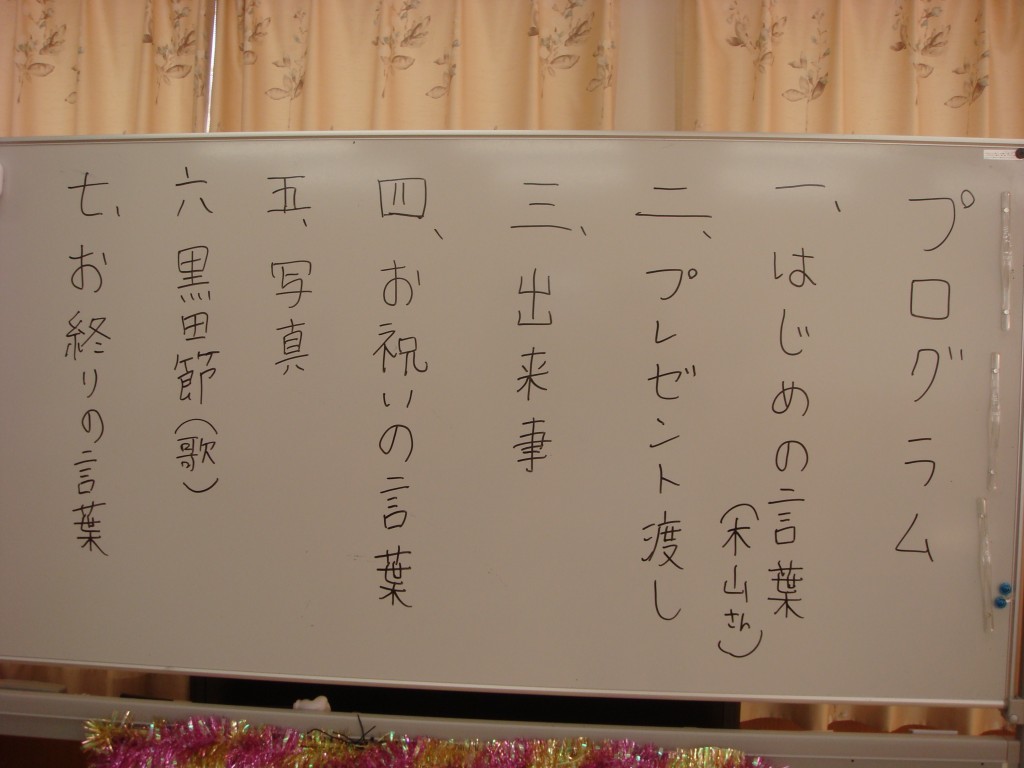 プログラム
一、はじめの言葉
(木山さん)
二、プレゼント渡し
三、出来事
四、お祝いの言葉
五、写真
六黒田節(歌)
七、お終りの言葉